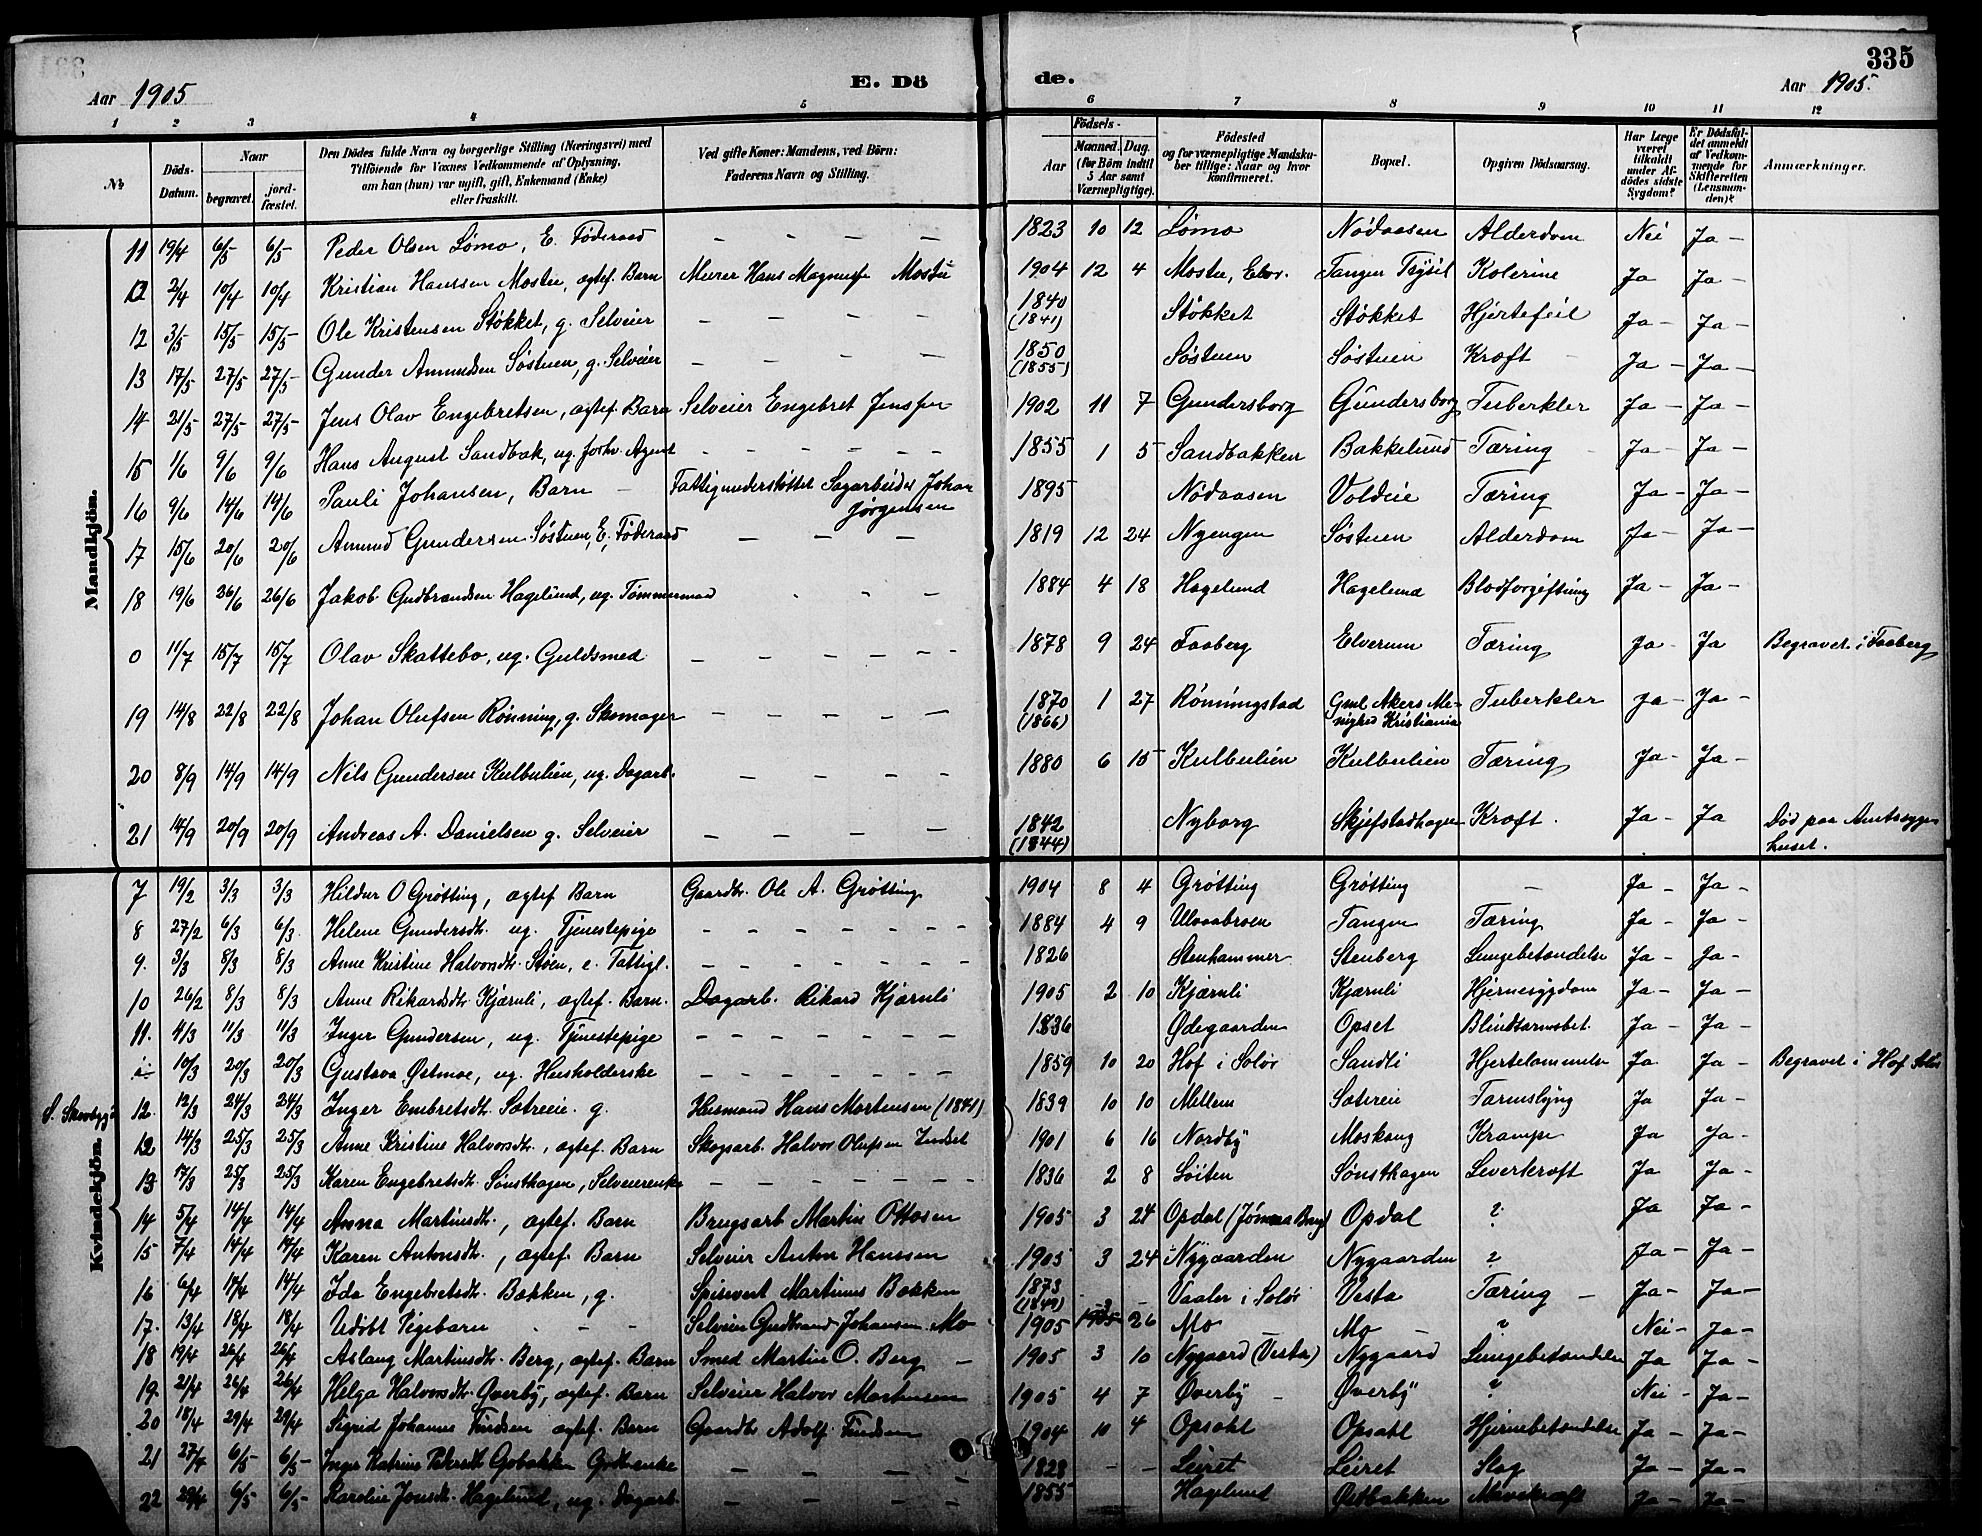 335
Aar 1905
E. Dö de.
Aar 1905.
1 2 3 4 5 6 7 8 9 10 11 12
No
Döds-Datum.
Naar
begravet.
jord-fæstet.
Den Dödes fulde Navn og borgerlige Stilling (Næringsvei) med
Tilföiende for Voxnes Vedkommende af Oplysning,
om han (hun) var ugift, gift, Enkemand (Enke)
eller fraskilt.
Ved gifte Koner: Mandens, ved Börn:
Faderens Navn og Stilling.
Födsels-
Aar
Maaned. Dag.
(for Börn indtil
5 Aar samt
Værnepligtige).
Födested
og for værnepligtige Mandsku-
ber tillige: Naar og hvor
konfirmeret.
Bopæl.
Opgiven Dödsaarsag.
Har Læge
været
tilkaldt
under Af-
dödes sidste
Sygdom?
Er Dödsfal-
det anmeldt
af Vedkom-
mende for
Skifteretten
(Lensman-
den)?
Anmærkninger.
Mandkjön.
11 19/4 6/5 6/5 Peder Olsen Lömo, E. Föderaad — — — — 1823 10 12 Lömo Nödaasen Alderdom Nei Ja —
2/4 10/4 10/4 Kristian Hanssen Mostu, ægtef. Barn Murer Hans Magnus Mostu 1904 12 4 Mostu, Elvr. Tangen Trysil Kolerine Ja Ja —
12 3/5 15/5 15/5 Ole Kristensen Stökket, g. Selveier — — — — 1840 (1841) Stökket Stökket Hjertefeil Ja — Ja —
13 17/5 27/5 27/5 Gunder Amundsen Söstuen, g. Selveier — — — — 1850 (1855) Söstuen Söstuen Kræft Ja — Ja —
14 21/5 27/5 27/5 Jens Olav Engebretsen, ægtef. Barn Selveier Engebret Jensen 1902 11 7 Gundersborg Gundersborg Tuberkler Ja — Ja —
15 1/6 9/6 9/6 Hans August Sandbak, ug. forhv. Agent — — — — 1855 1 5 Sandbakken Bakkelund Tæring Ja — Ja —
16 9/6 14/6 14/6 Pauli Johansen, Barn — Fattigunderstöttet Sagarbeider Johan
Jörgensen 1895 Nödaasen Voldeie Tæring Ja — Ja —
17 15/6 20/6 20/6 Amund Gundersen Söstuen, E, Föderaad — — — 1819 12 24 Nyengen Söstuen Alderdom Ja — Ja —
18 19/6 26/6 26/6 Jakob Gudbrandsen Hagelund, ug. Tömmermand 1884 4 18 Hagelund Hagelund Blodforgiftning Ja — Ja —
0 11/7 15/7 15/7 Olav Skattebo, ug. Guldsmed — — — — 1878 9 24 Faaberg Elverum Tæring Ja — Ja Begravet i Faaberg
19 14/8 22/8 22/8 Johan Olufsen Rönning, g. Skomager — — — — 1870 (1866) 1 27 Rönningstad Gml. Akers Me-
nighed Kristiania Tuberkler Ja — Ja —
20 8/9 14/9 14/9 Nils Gundersen Kulbulien, ug. Dagarb. — — — — 1880 6 15 Kulbulien Kulbulien Tæring Ja — Ja —
21 14/9 20/9 20/9 Andreas A. Danielsen g. Selveier — — — — 1842 (1844) Nyborg Skjefstadhagen Kræft. Ja — Ja Död paa Amtssyge-
huset.
Kvindekjön.
7 19/2 3/3 3/3 Hildur O Grötting, ægtef Barn Gaardbr. Ole A. Grötting 1904 8 4 Grötting Grötting — Ja — Ja —
8 27/2 6/3 6/3 Helene Gundersdtr. ug. Tjenestepige — — — — 1884 4 9 Ulvaabroen Tangen Tæring Ja — Ja —
9. 3/3 8/3 8/3 Anne Kristine Halvorsdtr. Stöen, e. Fattigl. — — — — 1826 Stenhammer Stenberg Lungebetændelse Ja — Ja —
10 26/2 8/3 8/3 Anne Rikardsdtr Kjærnli, ægtef. Barn. Dagarb. Rikard Kjærnli 1905 2 10 Kjærnli Kjærnli Hjernesygdom Ja — Ja —
11. 4/3 11/3 11/3 Inger Gundersen, ug. Tjenestepige — — — — 1836 Ødegaarden Opset Blindtarmsbet. Ja — Ja —
10/3 20/3 20/3 Gustava Østmoe, ug. Husholderske — — — — 1859 10 20 Hof i Solör Sandli Hjertelammelse Ja Ja — Begravet i Hof Solör
S. Skovbygd
12. 12/3 24/3 24/3 Inger Embretsdtr. Sætreeie. g. Husmand Hans Mortensen (1841) 1839 10 10 Mellem Sætreeie Tarmslyng Ja Ja —
14/3 25/3 25/3 Anne Kristine Halvorsdtr., ægtef. Barn Skogarb. Halvor Olufsen Indset 1901 6 16 Nordby Moskaug Krampe Ja Ja —
13 17/3 25/3 25/3 Karen Engebretsdtr. Sönsthagen, Selveierenke — — — — 1836 2 8 Löiten Sönsthagen Leverkræft Ja Ja —
14 5/4 14/4 14/4 Anna Martinsdtr., ægtef. Barn Brugsarb Martin Ottosen 1905 3 24 Opdal (Jömna Brug) Opdal ? Ja Ja —
15 7/4 14/4 14/4 Karen Antonsdtr., ægtef. Barn Selveier Anton Hanssen 1905 3 24 Nygaarden Nygaarden ? Ja — Ja —
16 6/4 17/4 14/4 Ida Engebretsdtr. Bakken, g. Spisevert Martinus Bakken 1873 (1849) — — Vaaler i Solör Vesta Tæring — Ja — Ja —
17. 13/4 18/4 18/4 Udöbt Pigebarn — — Selveier Gudbrand Johansen Mo 1905 3 26 Mo Mo — ? Nei — Ja —
18 19/4 26/4 26/4 Aslaug Martinsdtr. Berg, ægtef. Barn Smed Martin O. Berg — 1905 3 10 Nygaard (Vesta) Nygaard Lungebetændelse Ja Ja —
19. 21/4 26/4 26/4 Helga Halvorsdtr. Øverby, ægtef. Barn Selveier Halvor Mortensen 1905 4 7 Øverby — Øverby ? Nei — Ja —
20 18/4 29/4 29/4 Sigrid Johanne Findsen ægtef. Barn Gaardbr Adolf Findsen 1904 10 4 Opsahl Opsahl Hjernebetændelse Ja — Ja —
21 27/4 6/5 6/5 Inger Katrine Pedersdtr Gobakken — — — — 1828 — — Leiret Leiret Slag Ja — Ja —
22 29/4 6/5 6/5 Karoline Jonsdtr. Hagelund, ug. Dagarb. — — — — 1855 Hagelund Østbakken Mavekræft Ja — Ja —